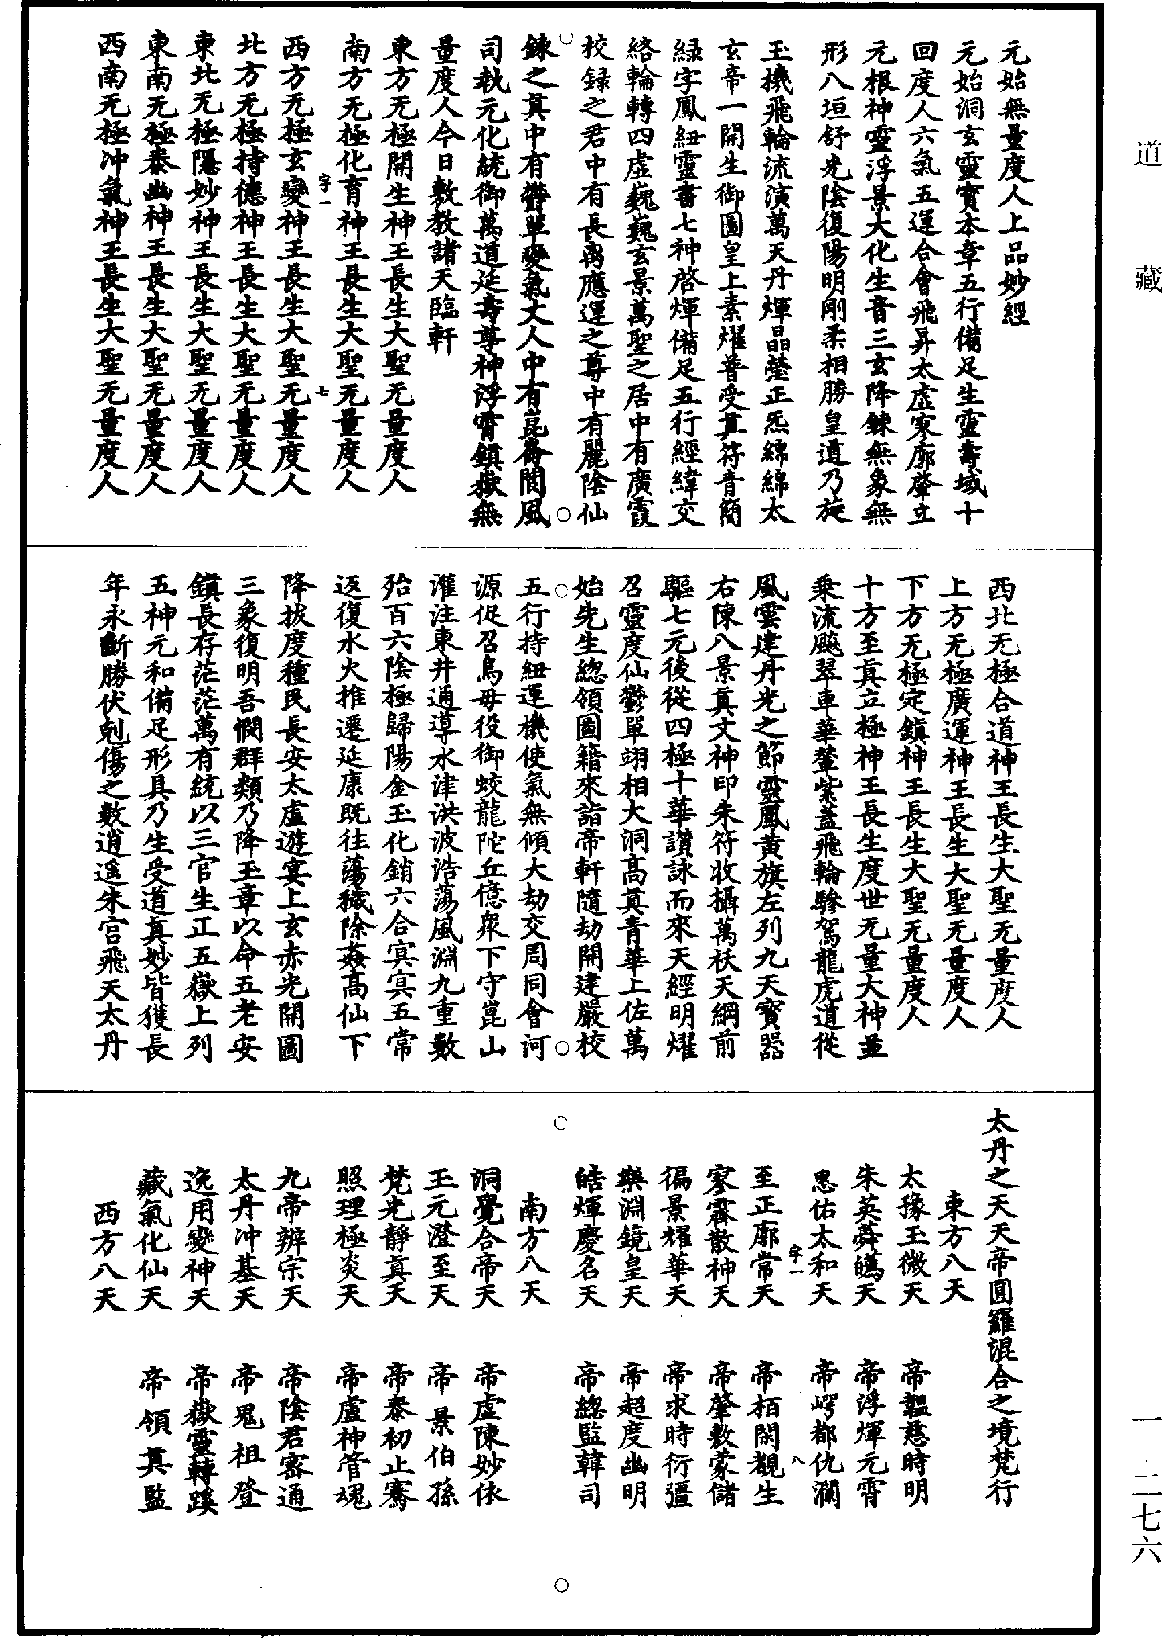 道藏
元始無量度人上品妙經
元始洞玄靈寶本章五行備足生靈壽域十
回度人六氣五運合會飛昇太虛寥廓肇立
元根神靈浮景大化生音三玄降鍊無象無
形八垣舒光陰復陽明剛柔相勝皇道乃旋
玉機飛輪流演萬天丹煇晶瑩正炁綿綿太
玄帝一開生御圖皇上素燿普受真符青簡
緑字鳳紐靈書七神啓煇備足五行經緯交
絡輪轉四虛巍巍玄景萬聖之居中有廣霞
校録之君中有長离應運之尊中有麗陰仙
鍊之真中有欎單變氣丈人中有崑崙閬風
司執元化統御萬道延壽尊神浮霄鎮嶽無
量度人今日敷教諸天臨軒
東方无極開生神王長生大聖无量度人
南方无極化育神王長生大聖无量度人
字一 七
西方无極玄變神王長生大聖无量度人
北方无極持德神王長生大聖无量度人
東北无極隱妙神王長生大聖无量度人
東南无極泰幽神王長生大聖无量度人
西南无極冲氣神王長生大聖无量度人
西北无極合道神王長生大聖无量度人
上方无極廣運神王長生大聖无量度人
下方无極定鎮神王長生大聖无量度人
十方至真立極神王長生度世无量大神並
乘流飈翠車華蓥紫蓋飛輪驂駕龍虎道從
風雲建丹光之節靈鳳黄旗左列九天寶器
右陳八景真文神印朱符收攝萬袄天綱前
驅七元後從四極十華讃詠而來天經明燿
召靈度仙鬱單翊相大洞高真青華上佐萬
始先生總領圖籍來詣帝軒隨劫開建嚴校
五行持紐運機使氣無傾大劫交周同會河
源促召鳥母役御蛟龍陀丘億衆下守崑山
灌注東井通導水津洪波浩蕩風淵九重數
殆百六陰極歸陽金玉化銷六合寞寞五常
返復水火推遷延康既往蕩穢除姦高仙下
降拔度種民長安太虛遊宴上玄赤光開圖
三象復明吾憫群類乃降玉章以命五老安
鎮長存茫茫萬有統以三官生正五嶽上列
五神元和備足形具乃生受道真妙皆獲長
年永斷勝伏剋傷之數逍遥朱宫飛天太丹
太丹之天天帝圓羅混合之境梵行
東方八天
太豫玉微天 帝韞慈時明
朱英舜皪天 帝浮煇元霄
思佑太和天 帝崿都仇瀾
字一 八
至正廓常天 帝栢閎觀生
寥霩散神天 帝肇敷蒙儲
徧景燿華天 帝求時衍彊
藥淵鏡皇天 帝超度幽明
皓煇慶名天 帝總監韓司
南方八天
洞覺合帝天 帝虛陳妙依
玉元澄至天 帝景伯孫
梵光靜真天 帝泰初止騫
照理極炎天 帝盧神管魂
九帝辨宗天 帝陰君審通
太丹冲基天 帝鬼祖登
逸用變神天 帝嶽靈轉蹊
藏氣化仙天 帝領真監
西方八天
一・二七六